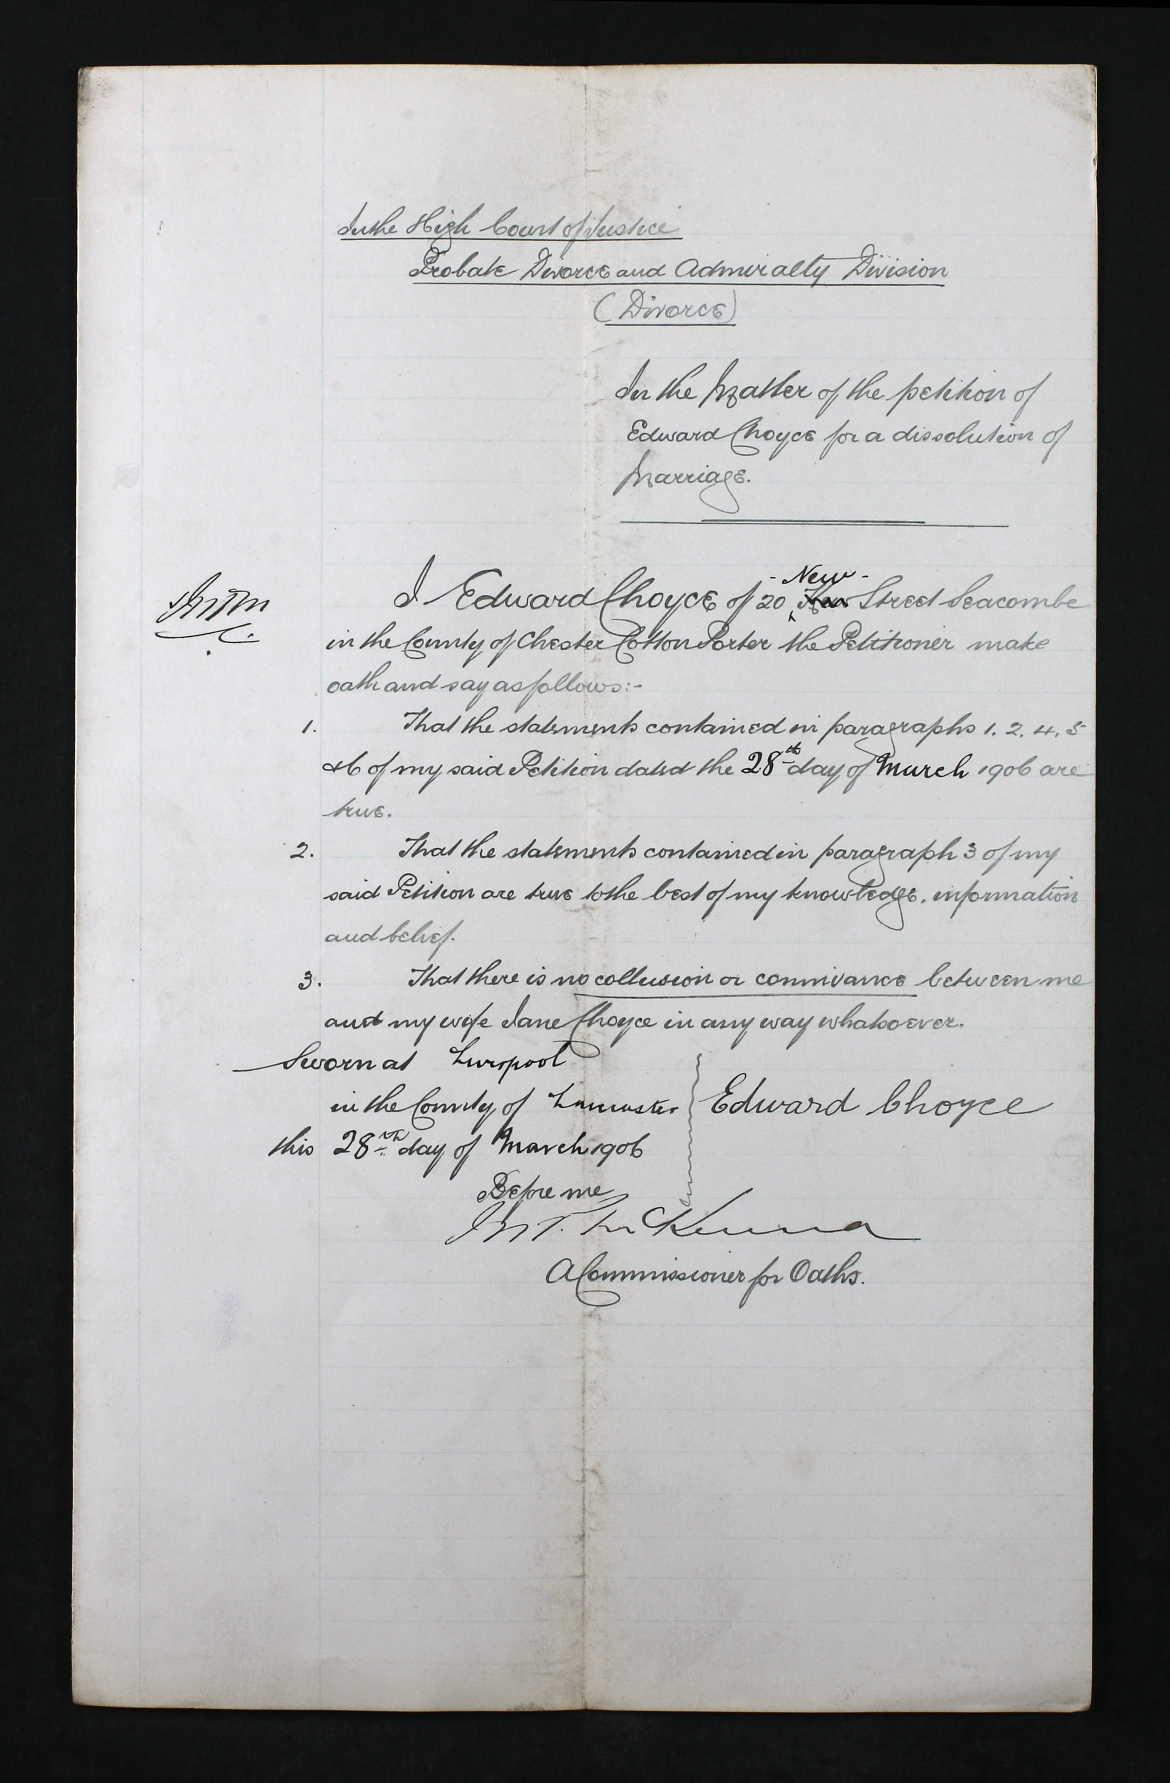 In the High Court of Justice
Probate Divorce and Admiralty Division
(Divorce)
In the Matter of the petition of
Edward Choyce for a dissolution of
Marriage.
- New -
I Edward Choyce of 20 Street Seacombe
in the County of Chester Cotton Porter the Petitioner make
oath and say as follows:-
1. That the statements contained in paragraphs 1. 2. 4. 5
& 6 of my said Petition dated the 28th day of March 1906 are
true.
2. That the statements contained in paragraph 3 of my
said Petition are true to the best of my knowledge, information
and belief.
3. That there is no collusion or connivance between me
and my wife Jane Choyce in any way whatsoever.
Sworn at Liverpool
in the County of Lancaster
Edward Choyce
this 28th day of March 1906
Before me
McKenna
A Commissioner for Oaths.